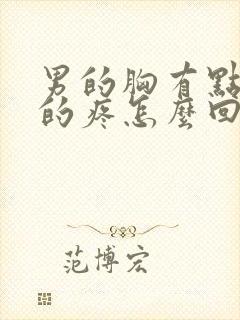 男的胸有點
的疼怎麼回
范博宏